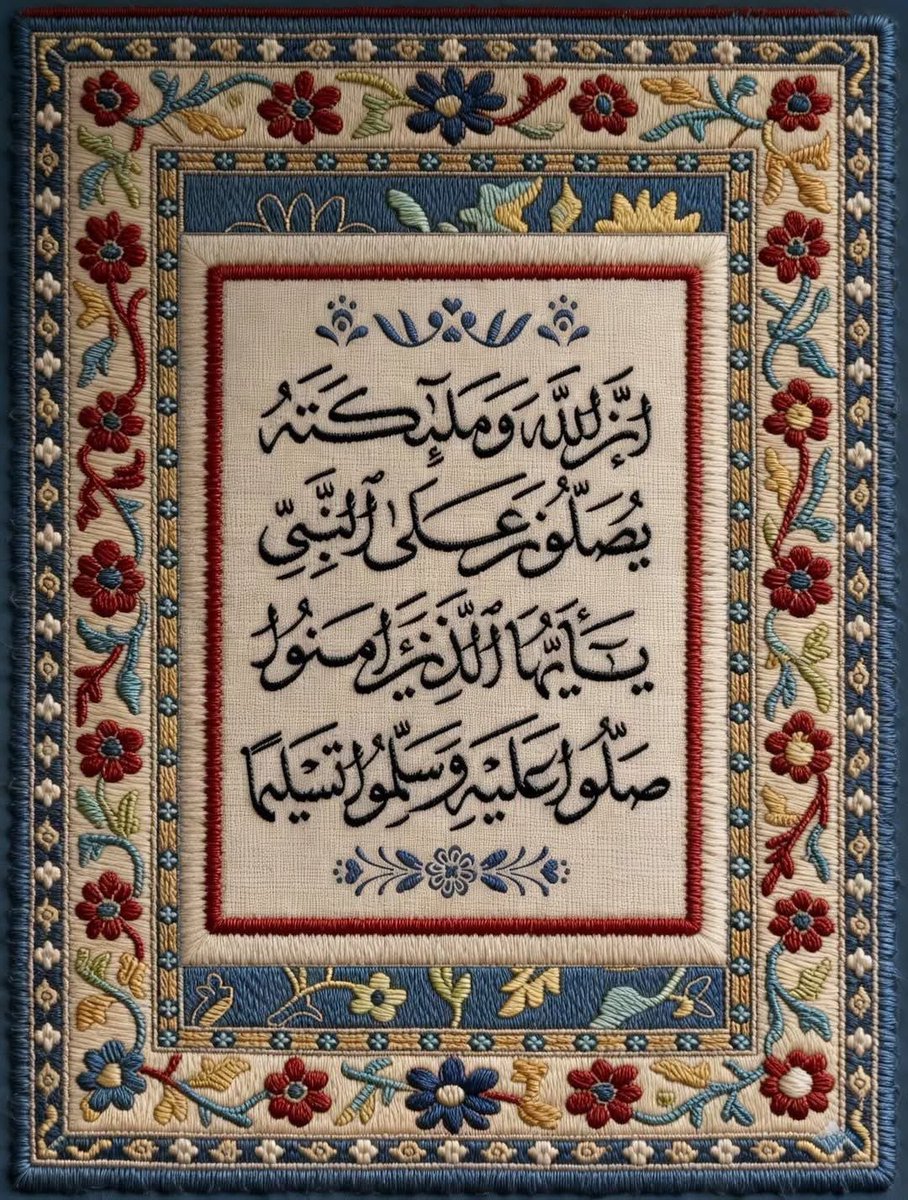 إِنَّ اللَّهَ وَمَلَٰٓئِكَتَهُ
يُصَلُّونَ عَلَى ٱلنَّبِيِّ
يَٰٓأَيُّهَا ٱلَّذِينَ ءَامَنُوا
صَلُّوا عَلَيْهِ وَسَلِّمُوا تَسْلِيمًا